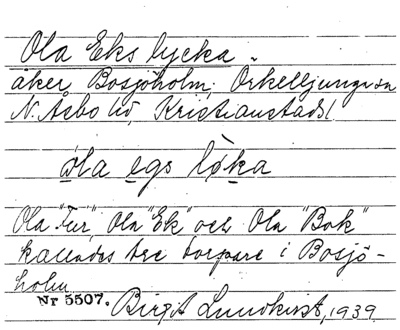 Ola Eks lycka
åker, Bosjöholm, Örkelljunga sn
N. Åsbo hd, Kristianstads l
ola egs løka
Ola "Fur", Ola "Ek" och Ola "Bok"
kallades tre torpare i Bosjö-
holm
Nr 5507. Birgit Lundkvist, 1939